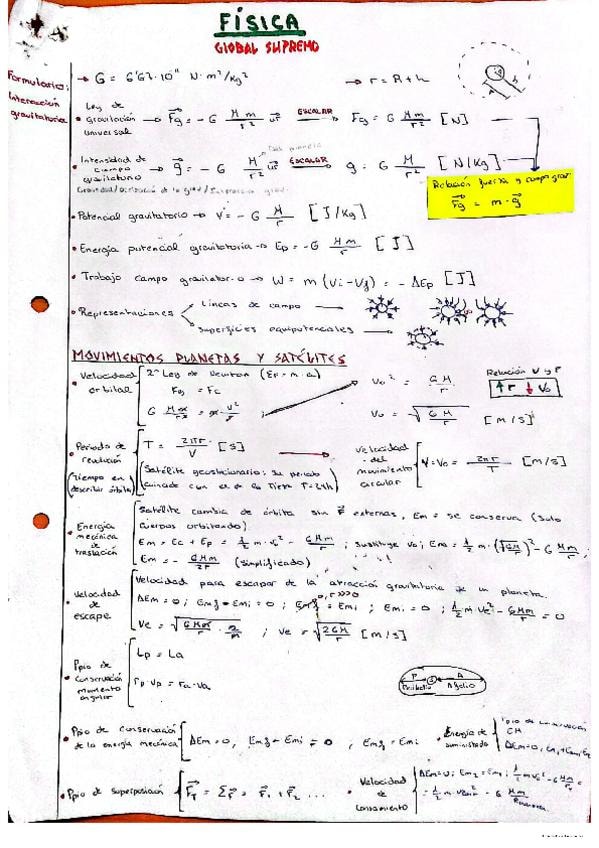 FÍSICA
GLOBAL SUPREMO
Formulario:
Interacción
gravitatoria
→ G = 6'67·10¹¹ N·m²/kg²
→ r = R + h
• Ley de gravitación universal → F⃗g = - G M m / r² u⃗r ESCALAR → Fg = G M m / r² [N]
• Intensidad de campo gravitatorio → g⃗ = - G M / r² u⃗r ESCALAR → g = G M / r² [N/Kg]
Relación fuerza y campo grav:
F⃗g = m · g⃗
• Potencial gravitatorio → V = - G M / r [J/Kg]
• Energía potencial gravitatoria → Ep = -G M m / r [J]
• Trabajo campo gravitatorio → W = m (Vi - Vf) = - ΔEp [J]
• Representaciones
Líneas de campo →
Superficies equipotenciales →
MOVIMIENTOS PLANETAS Y SATÉLITES
• Velocidad orbital
2ª Ley de Newton (ΣF = m·a)
Fg = Fc
G M m / r² = m · v² / r ;
Vo² = G M / r
Vo = √(G M / r) [m/s]
Relación V y r
↑r ↓Vo
• Periodo de revolución
(Tiempo en describir órbita)
T = 2πr / V [s]
(Satélite geoestacionario: Su periodo
coincide con el de la Tierra T=24h)
Velocidad del movimiento circular
V = Vo = 2πr / T [m/s]
• Energía mecánica de traslación
Satélite cambia de órbita sin F⃗ externas, Em = se conserva (Solo
cuerpos orbitando)
Em = Ec + Ep = 1/2 m · Vo² - G M m / r ; sustituye Vo; Em = 1/2 · m · (√(G M / r))² - G M m / r ;
Em = - G M m / 2r (simplificado)
• Velocidad de escape
Velocidad para escapar de la atracción gravitatoria de un planeta.
ΔEm = 0 ; Emf - Emi = 0 ; Emf = Emi ; Emi = 0 ; 1/2 m Ve² - G M m / r = 0
Ve = √(G M m / r · 2 / m) ; Ve = √(2 G M / r) [m/s]
• Ppio de conservación momento angular
Lp = La
rp · Vp = ra · Va
P A
Perihelio Afelio
• Ppio de conservación de la energía mecánica
ΔEm = 0, Emf - Emi = 0 ; Emf = Emi
• Energía de suministrada
• Ppio de superposición
F⃗T = ΣF⃗ = F⃗1 + F⃗2 ...
• Velocidad de lanzamiento
ΔEm = 0; Emi = Emf;